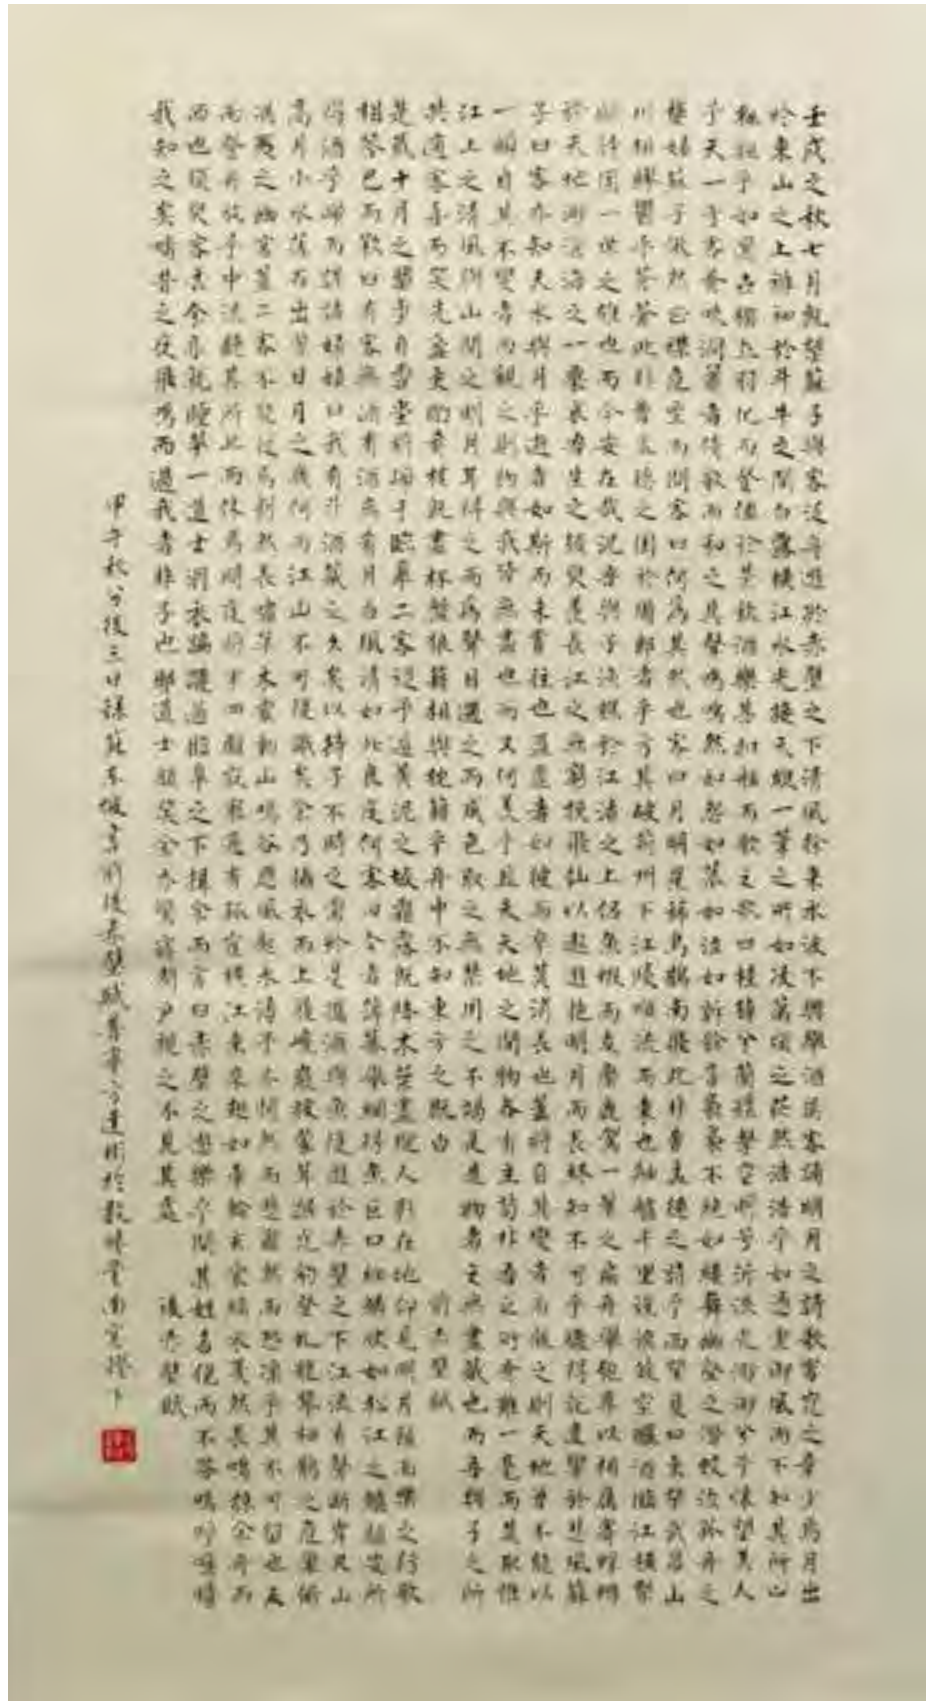 壬戌之秋七月既望蘇子與客泛舟遊於赤壁之下清風徐來水波不興舉酒屬客誦明月之詩歌窈窕之章少焉月出
於東山之上徘徊於斗牛之間白露橫江水光接天縱一葦之所如凌萬頃之茫然浩浩乎如憑虛御風而不知其所止
飄飄乎如遺世獨立羽化而登僊於是飲酒樂甚扣舷而歌之歌曰桂棹兮蘭槳擊空明兮泝流光渺渺兮予懷望美人
兮天一方客有吹洞簫者倚歌而和之其聲嗚嗚然如怨如慕如泣如訴餘音裊裊不絕如縷舞幽壑之潛蛟泣孤舟之
嫠婦蘇子愀然正襟危坐而問客曰何為其然也客曰月明星稀烏鵲南飛此非曹孟德之詩乎西望夏口東望武昌山
川相繆鬱乎蒼蒼此非曹孟德之困於周郎者乎方其破荊州下江陵順流而東也舳艫千里旌旗蔽空釃酒臨江橫槊
賦詩固一世之雄也而今安在哉況吾與子漁樵於江渚之上侶魚蝦而友麋鹿駕一葉之扁舟舉匏尊以相屬寄蜉蝣
於天地渺滄海之一粟哀吾生之須臾羨長江之無窮挾飛仙以遨遊抱明月而長終知不可乎驟得託遺響於悲風蘇
子曰客亦知夫水與月乎逝者如斯而未嘗往也盈虛者如彼而卒莫消長也蓋將自其變者而觀之則天地曾不能以
一瞬自其不變者而觀之則物與我皆無盡也而又何羨乎且夫天地之間物各有主苟非吾之所有雖一毫而莫取惟
江上之清風與山間之明月耳得之而為聲目遇之而成色取之無禁用之不竭是造物者之無盡藏也而吾與子之所
共適客喜而笑洗盞更酌肴核既盡杯盤狼籍相與枕籍乎舟中不知東方之既白 前赤壁賦
是歲十月之望步自雪堂將歸于臨皋二客從予過黃泥之坂霜露既降木葉盡脫人影在地仰見明月顧而樂之行歌
相答已而歎曰有客無酒有酒無肴月白風清如此良夜何客曰今者薄暮舉網得魚巨口細鱗狀如松江之鱸顧安所
得酒乎歸而謀諸婦婦曰我有斗酒藏之久矣以待子不時之需於是攜酒與魚復遊於赤壁之下江流有聲斷岸尺山
高月小水落石出曾日月之幾何而江山不可復識矣余乃攝衣而上履巉巖披蒙茸踞虎豹登虬龍攀栖鶻之危巢俯
馮夷之幽宮蓋二客不能從焉劃然長嘯草木震動山鳴谷應風起水湧予亦悄然而悲肅然而恐凜乎其不可留也反
而登舟放乎中流聽其所止而休焉時夜將半四顧寂寥適有孤鶴橫江東來翅如車輪玄裳縞衣戛然長鳴掠余舟而
西也須臾客去余亦就睡夢一道士羽衣蹁躚過臨皋之下揖余而言曰赤壁之遊樂乎問其姓名俛而不答嗚呼噫嘻
我知之矣疇昔之夜飛鳴而過我者非子也耶道士顧笑余亦驚寤開戶視之不見其處 後赤壁賦
甲午秋分後三日錄蘇東坡前後赤壁賦 於 堂南窗燈下